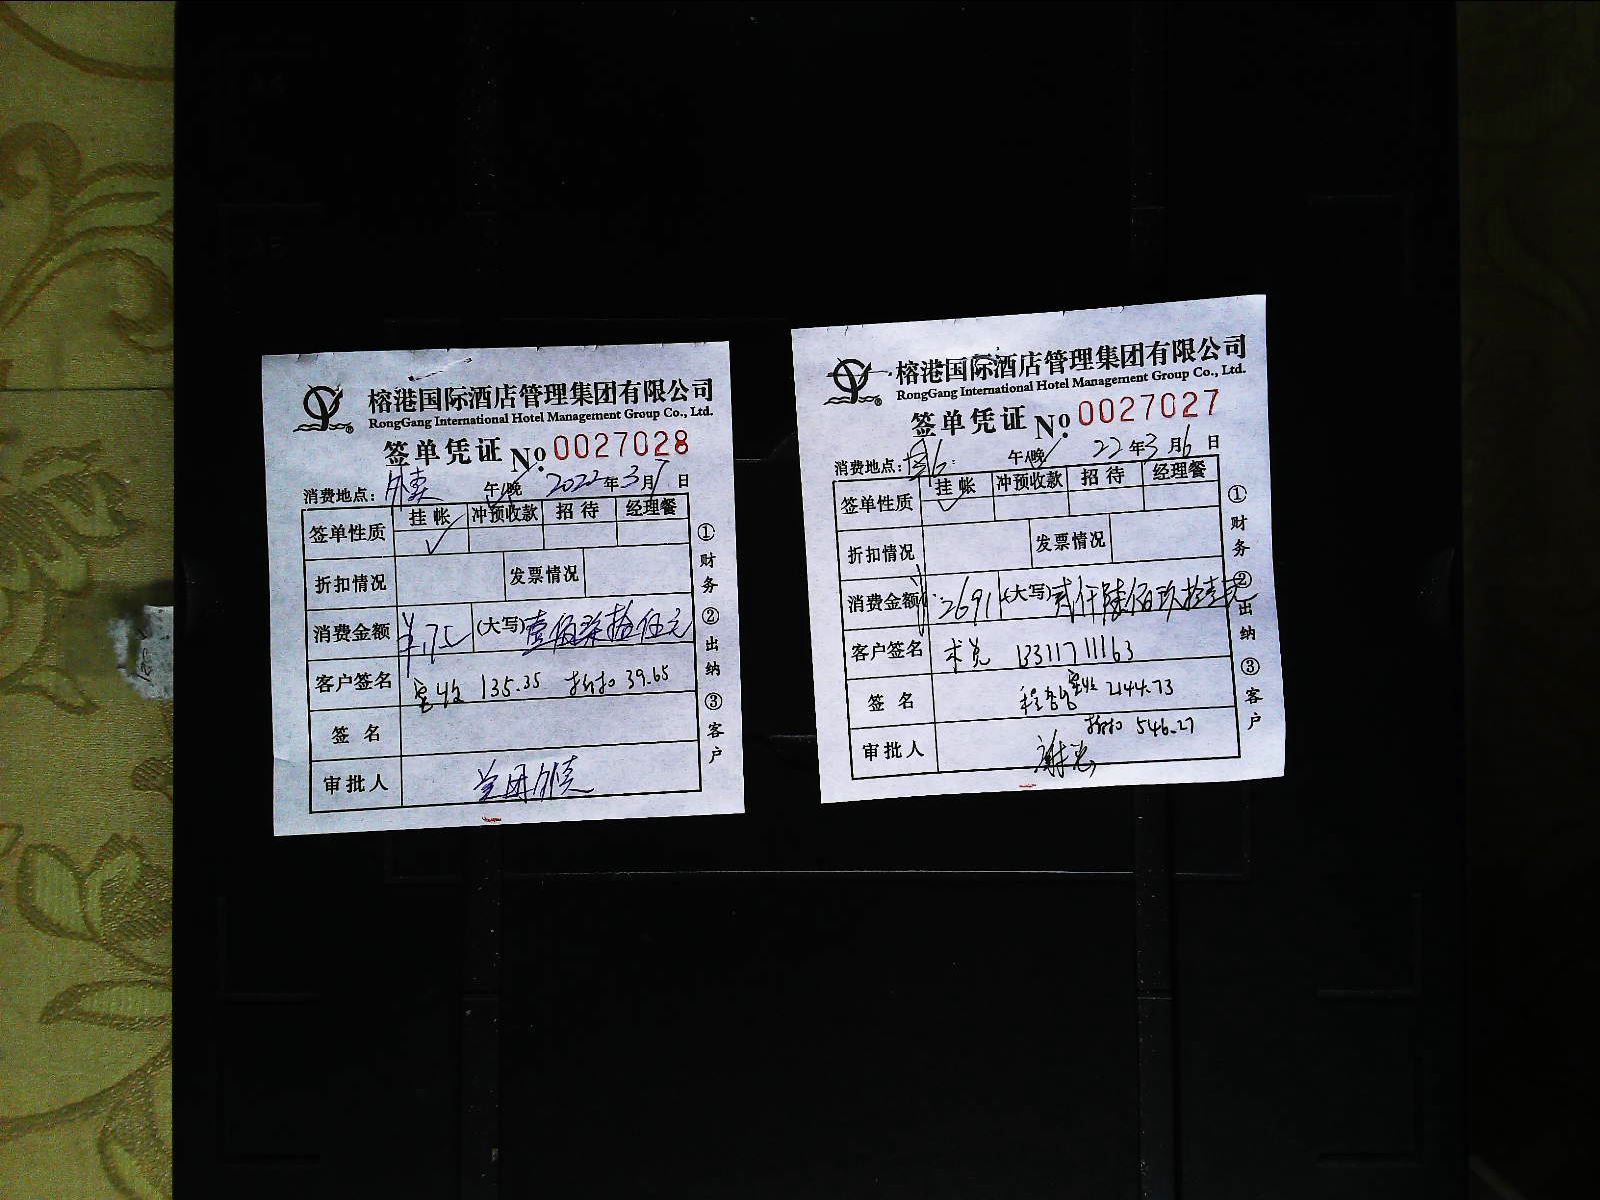 榕港国际酒店管理集团有限公司
RongGang International Hotel Management Group Co., Ltd.
签单凭证 No. 0027028
消费地点: 外卖 午/晚 2022年3月7日
签单性质 挂帐 冲预收款 招待 经理餐
✓
折扣情况 发票情况
消费金额 175 (大写) 壹佰柒拾伍元
客户签名 实收 135.35 折扣 39.65
签名
审批人
①财务 ②出纳 ③客户
榕港国际酒店管理集团有限公司
RongGang International Hotel Management Group Co., Ltd.
签单凭证 No. 0027027
消费地点: 午/晚 22年3月6日
签单性质 挂帐 冲预收款 招待 经理餐
✓
折扣情况 发票情况
消费金额 2691 (大写) 贰仟陆佰玖拾壹元
客户签名 13311711163
签名 实收 2144.73
折扣 546.27
审批人
①财务 ②出纳 ③客户